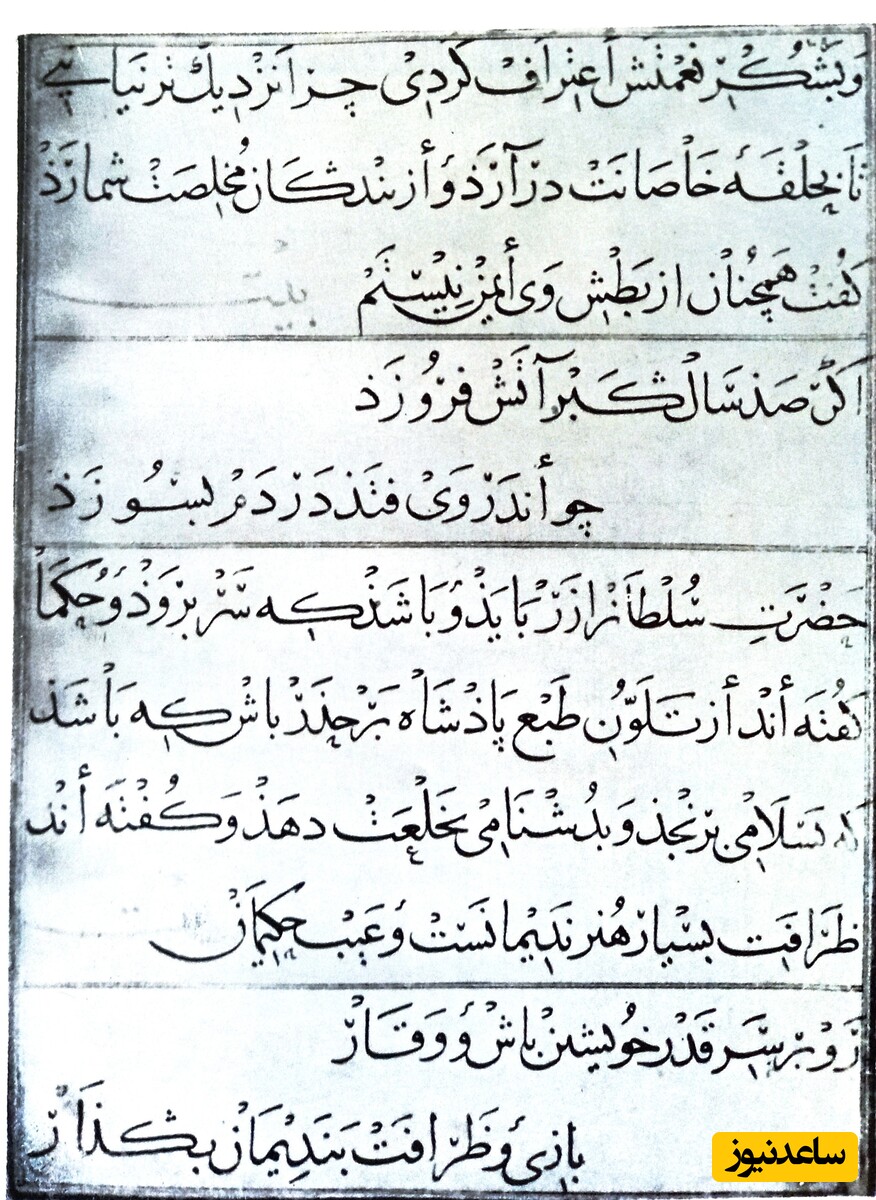 وَبشُكرِ نعمتش أعتراف كردى چرا نزديك تر نيائى
تا بحلقهٔ خاصانت درآرذ وُ أز بندكان مخلصت شمارذ
كفت همچنان از بطش وى أيمن نيستم
بيت
اكر صذ سال كبر آتش فروزذ
چو أندر وى فتذ در دم بسوزذ
حضرتِ سُلطان را زر بايذ وُ باشذ كه سَر بروذ وَحُكما
كفته أند أز تلوّن طبع پاذشاه بر حذر باش كه باشذ
كه بسلامى برنجذ و بدشنامى خلعت دهذ وَ كفته أند
ظرافت بسيار هنر نديمانست وُ عيب حكيمان
تو بر سر قدر خويشتن باش وُ وقار
بازى وُ ظرافت بنديمان بكذار
ساعدنیوز